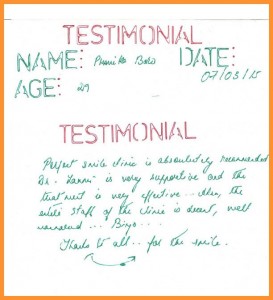 TESTIMONIAL
NAME: DATE:
07/03/15
AGE: 29
TESTIMONIAL
Perfect smile clinic is absolutely recommended
Dr. is very supportive and the
treatment is very effective... Also, the
entire staff of the clinic is decent, well
mannered... Bingo...
Thanks to all.. for the smile.